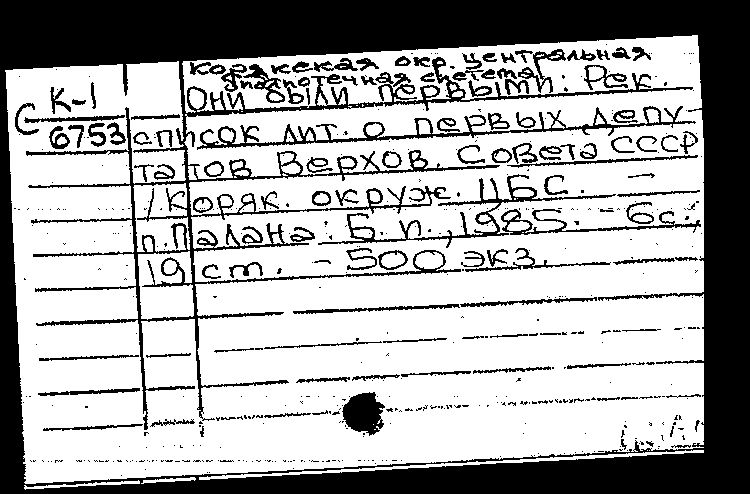 Корякская окр. центральная
библиотечная система
К-1
Они были первыми: Рек.
С 6753 список лит. о первых депу-
татов Верхов. Совета СССР
/Коряк. окруж. ЦБС. —
п. Палана: Б. п., 1985. - 6с.,
19 cm. - 500 экз.